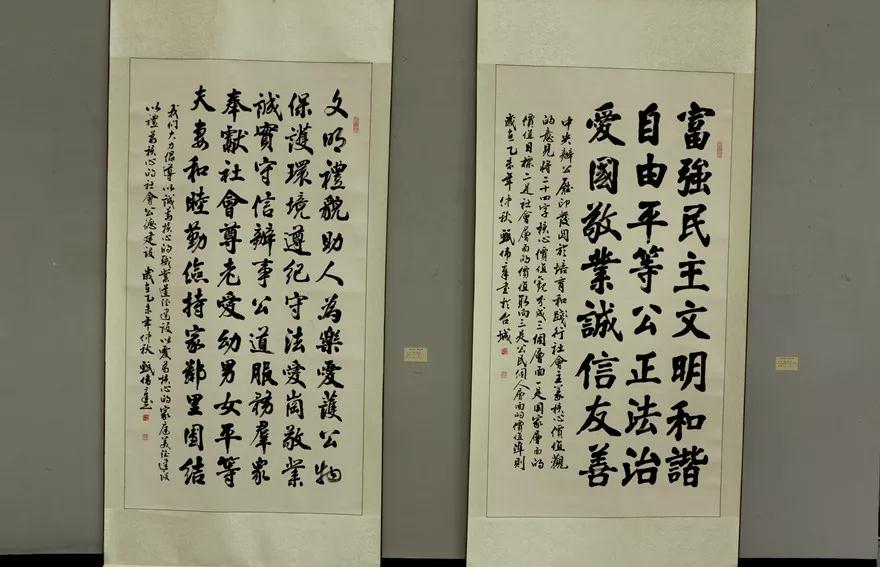 富強民主文明和諧
自由平等公正法治
愛國敬業誠信友善
中央辦公廳印發關於培育和踐行社會主義核心價值觀
的意見將二十四字核心價值觀分成三個層面一是國家層面的
價值目標二是社會層面的價值取向三是公民個人層面的價值準則
歲在乙未年仲秋甄偉書於台城
文明禮貌助人為樂愛護公物
保護環境遵紀守法愛崗敬業
誠實守信辦事公道服務羣眾
奉獻社會尊老愛幼男女平等
夫妻和睦勤儉持家鄰里團結
我們大力倡導以誠為核心的職業道德建設以愛為核心的家庭美德建設
以禮為核心的社會公德建設 歲在乙未年仲秋 甄偉